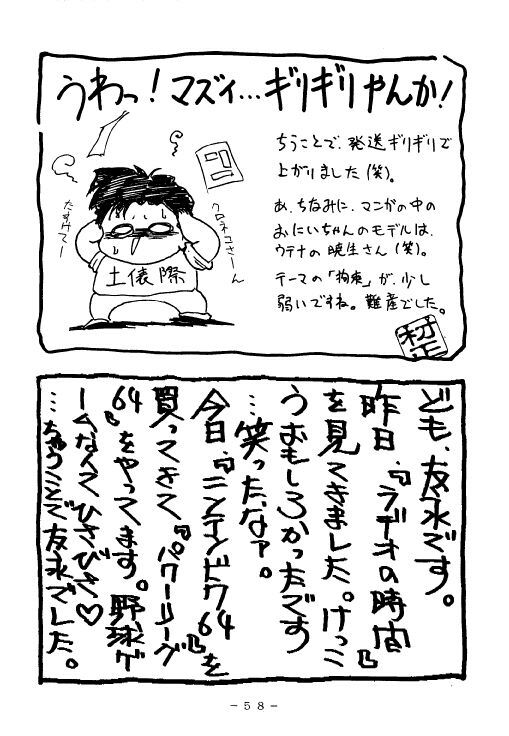 うわっ！マズィ…ギリギリやんか！
ちうことで、発送ギリギリで
上がりました(笑)。
あ、ちなみに、マンガの中の
おにいちゃんのモデルは、
ウテナの暁生さん(笑)。
テーマの「拘束」が、少し
弱いですね。難産でした。
たすけてー
クロネコさーん
土俵際
ども、友永です。
昨日、『ラヂオの時間』
を見てきました。けっこ
うおもしろかったです
…笑ったなァ。
今日、『ニンテンドウ64』を
買ってきて『パワーリーグ
64』をやってます。野球ゲ
ームなんてひさびさ♡
…ちゅうことで友永でした。
-58-